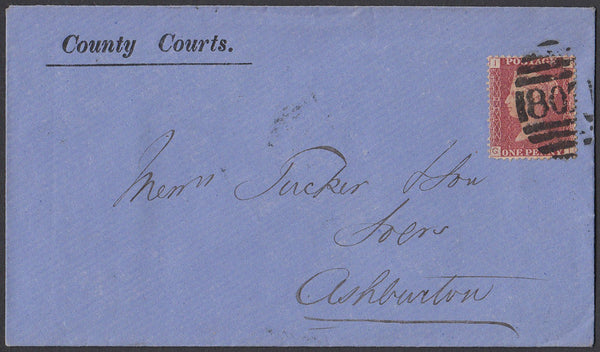 County Courts.
I POSTAGE
807
G ONE PENNY I
Messrs Tucker & Son
Solrs
Ashburton